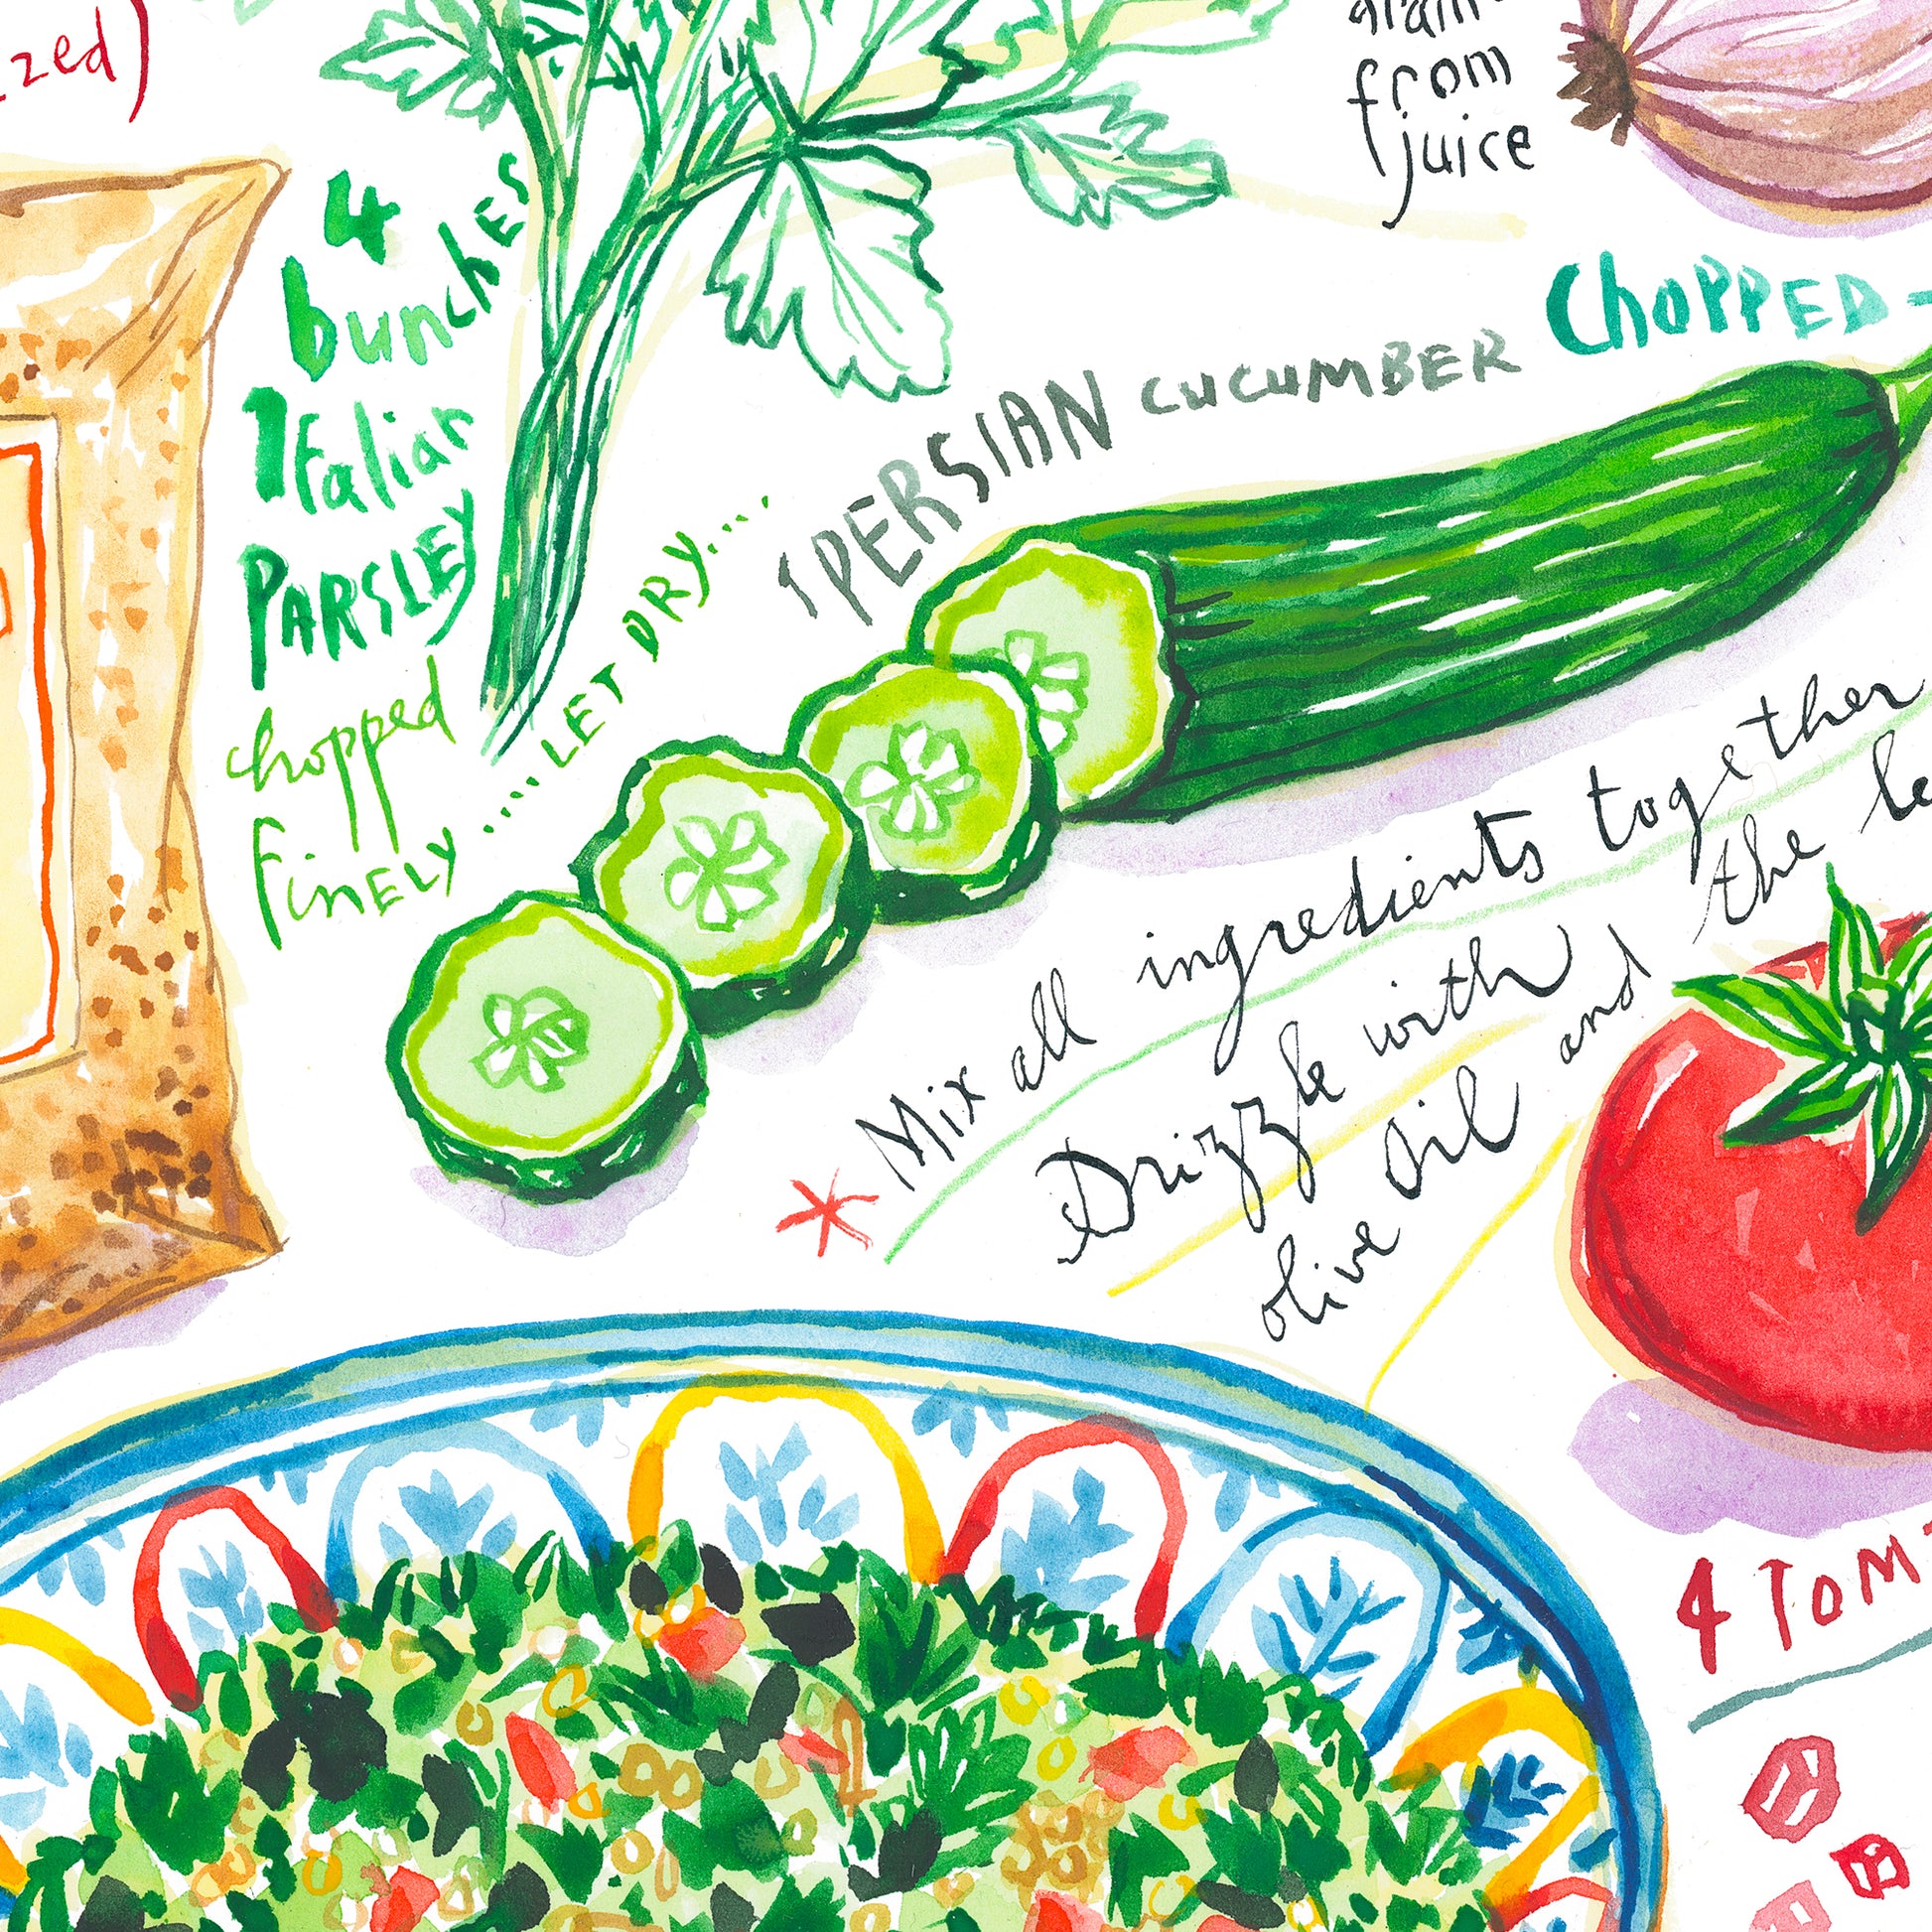 zed)
4
bunches
Italian
PARSLEY
chopped
FiNELY
....LET DRY....
from
juice
1 PERSIAN CUCUMBER
ChOPPED -
* Mix all ingredients together
Drizzle with
olive oil and the
4 TOM